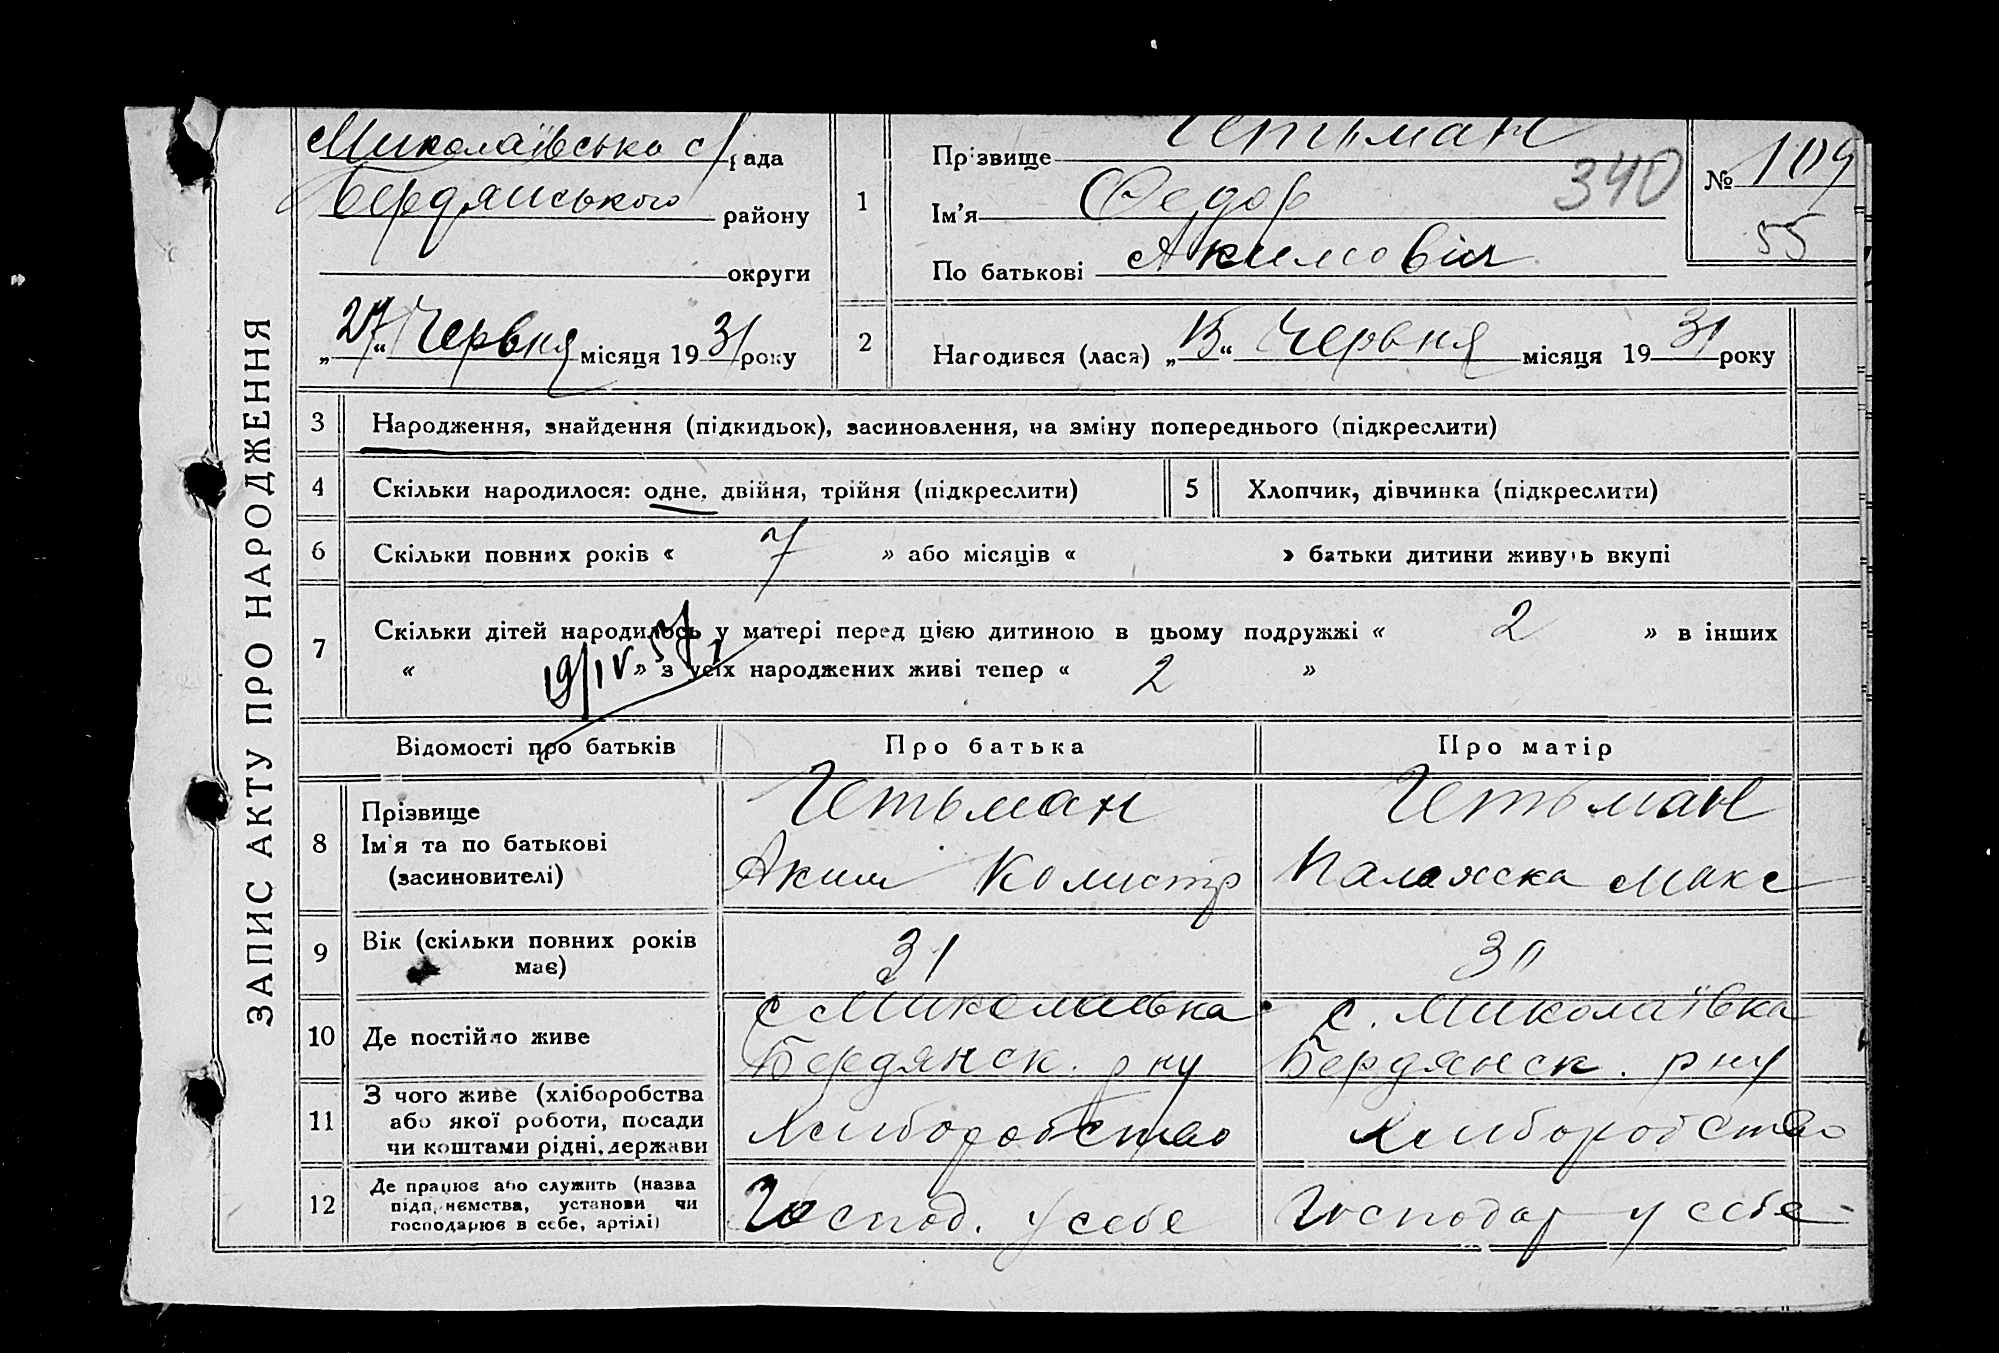 ЗАПИС АКТУ ПРО НАРОДЖЕННЯ
Миколаївська с/рада
Бердянського району
округи
„27“ Червня місяця 1931 року
1
Прізвище Гетьман
Ім’я Федор
По батькові Акимовіч
340
№ 109
55
2
Народився (лася) „15“ Червня місяця 1931 року
3 Народження, знайдення (підкидьок), засиновлення, на зміну попереднього (підкреслити)
4 Скільки народилося: одне, двійня, трійня (підкреслити)
5 Хлопчик, дівчинка (підкреслити)
6 Скільки повних років « 7 » або місяців « » батьки дитини живуть вкупі
7 Скільки дітей народилось у матері перед цією дитиною в цьому подружжі « 2 » в інших
« » з усіх народжених живі тепер « 2 »
19/IV 57
Відомості про батьків
Про батька
Про матір
8 Прізвище
Ім’я та по батькові
(засиновителі)
Гетьман
Аким Комистр
Гетьман
Палажка Макс
9 Вік (скільки повних років
має)
31
30
10 Де постійно живе
с Миколаівка
Бердянск. рну
с. Миколаївка
Бердянск. рну
11 З чого живе (хліборобства
або якої роботи, посади
чи коштами рідні, держави
Хлиборобство
Хлиборобство
12 Де працює або служить (назва
підприємства, установи чи
господарює в себе, артілі)
Господ. у себе
Господар у себе